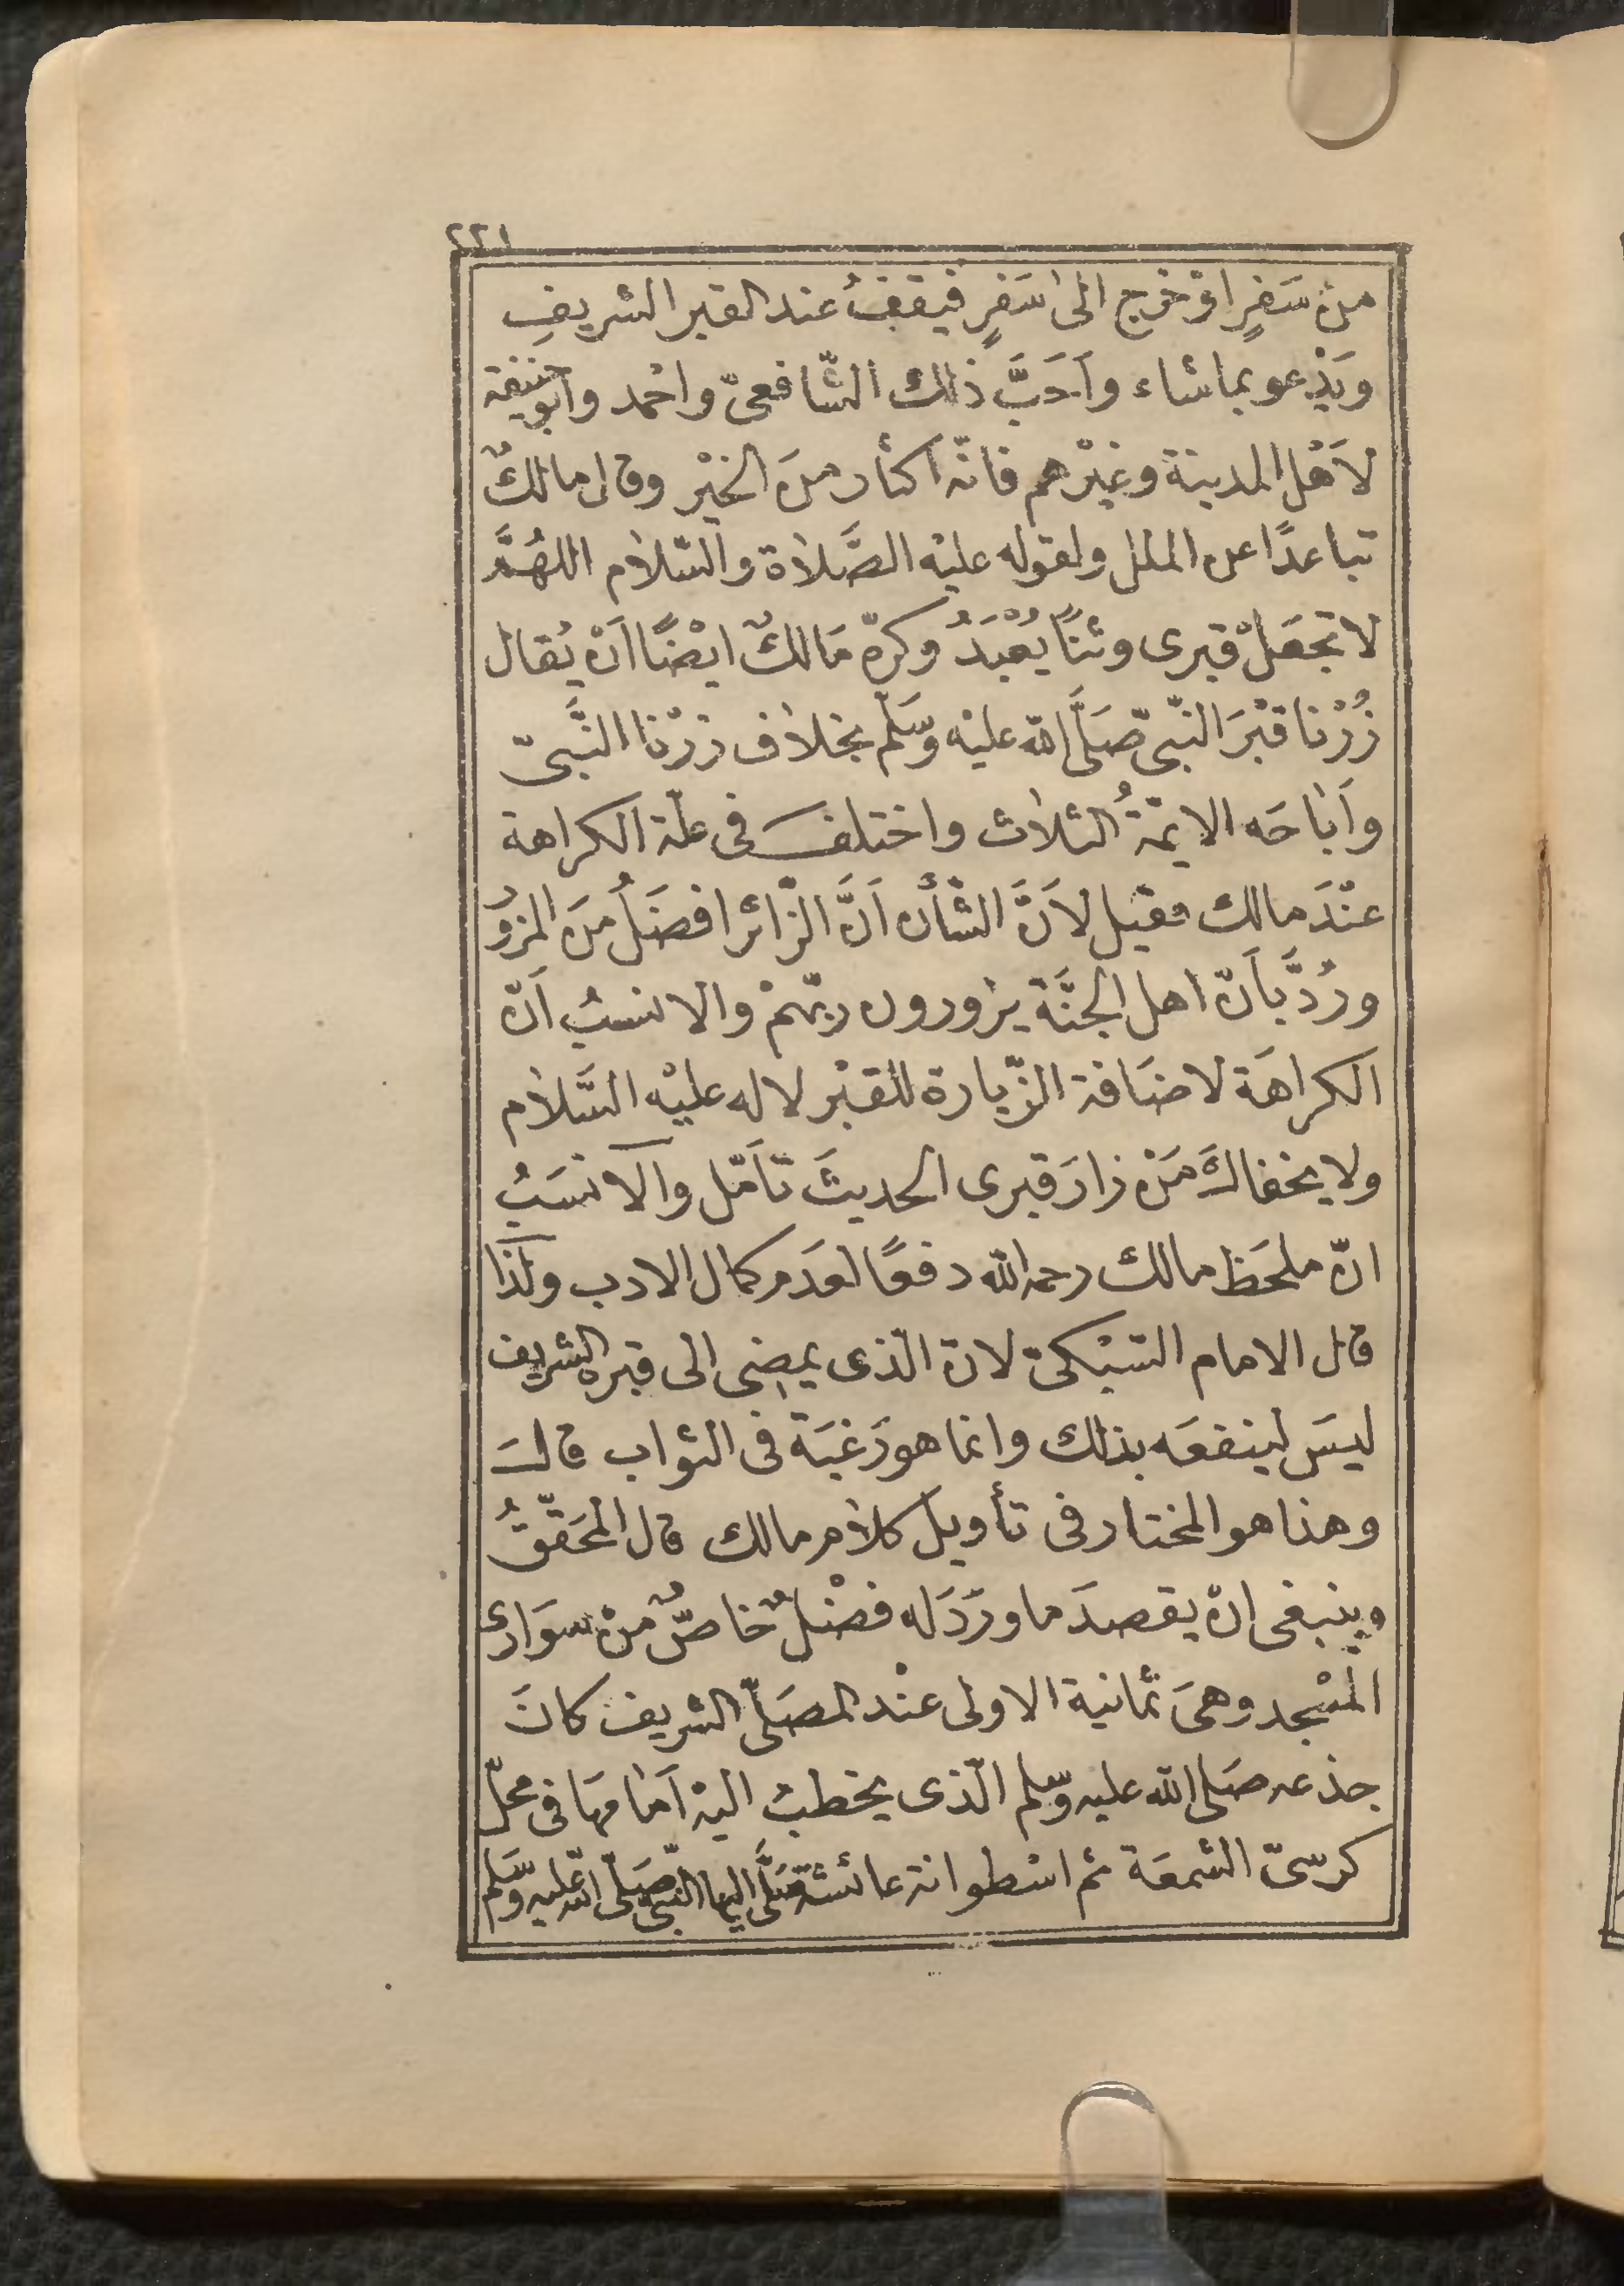 ٢٢١
من سَفرٍ اوْ خرج الى سَفرٍ فيقفُ عند القبر الشريفِ
ويَدْعو بما شاء واَحَبَّ ذلك الشّافعىّ واحْمد وابو حنيفة
لاَهْل المدينة وغيْرهم فانّه اكثار منَ الخيْر وقال مالكٌ
تباعدًا عن الملل ولقوله عليْه الصَّلاة والسّلام اللهُمَّ
لا تجعَلْ قبرى وثنًا يُعْبَدُ وكرّه مَالكٌ ايْضًا اَنْ يُقال
زُرْنا قبْرَ النّبىّ صَلَّى الله عليْه وَسَلّم بخلاف زرْنا النَّبىّ
واَباحَه الايمّةُ الثلاث واختلف فى علّة الكراهة
عنْدَ مالك فقيل لاَنَّ الشأن اَنَّ الزّائر افضَلُ منَ المزوُر
ورُدَّ بَاَنّ اهل الجنَّة يزورون ربّهمْ والانسبُ اَنّ
الكراهَة لاضَافة الزّيارة للقبْر لا له عليْه السَّلام
ولا يخفاكَ مَنْ زارَ قبرى الحديثَ تاَمّل والانسَبُ
انّ ملحَظ مالك رحمه الله دفعًا لعدَم كمال الادب ولذا
قال الامام السّبْكىّ لانّ الّذى يمضى الى قبره الشريف
ليسَ لينفعَه بذلك وانما هو رَغبَة فى الثواب قالَ
وهذا هو المختار فى تأويل كلام مالك قال المحَقّقُ
وينبغى انْ يقصدَ ما ورَدَ له فضْلٌ خاصٌّ منْ سوَارى
المسْجد وهىَ ثمانية الاولى عنْد المصَلّى الشريف كانَ
جذعه صَلى الله عليه وسّلم الّذى يخطبُ اليْه اَمَامهَا فى محلّ
كرسىّ الشمعَة ثم اسْطوانة عائشة صَلَّى اليها النبىّ صَلّى الله عليه وَسّلم